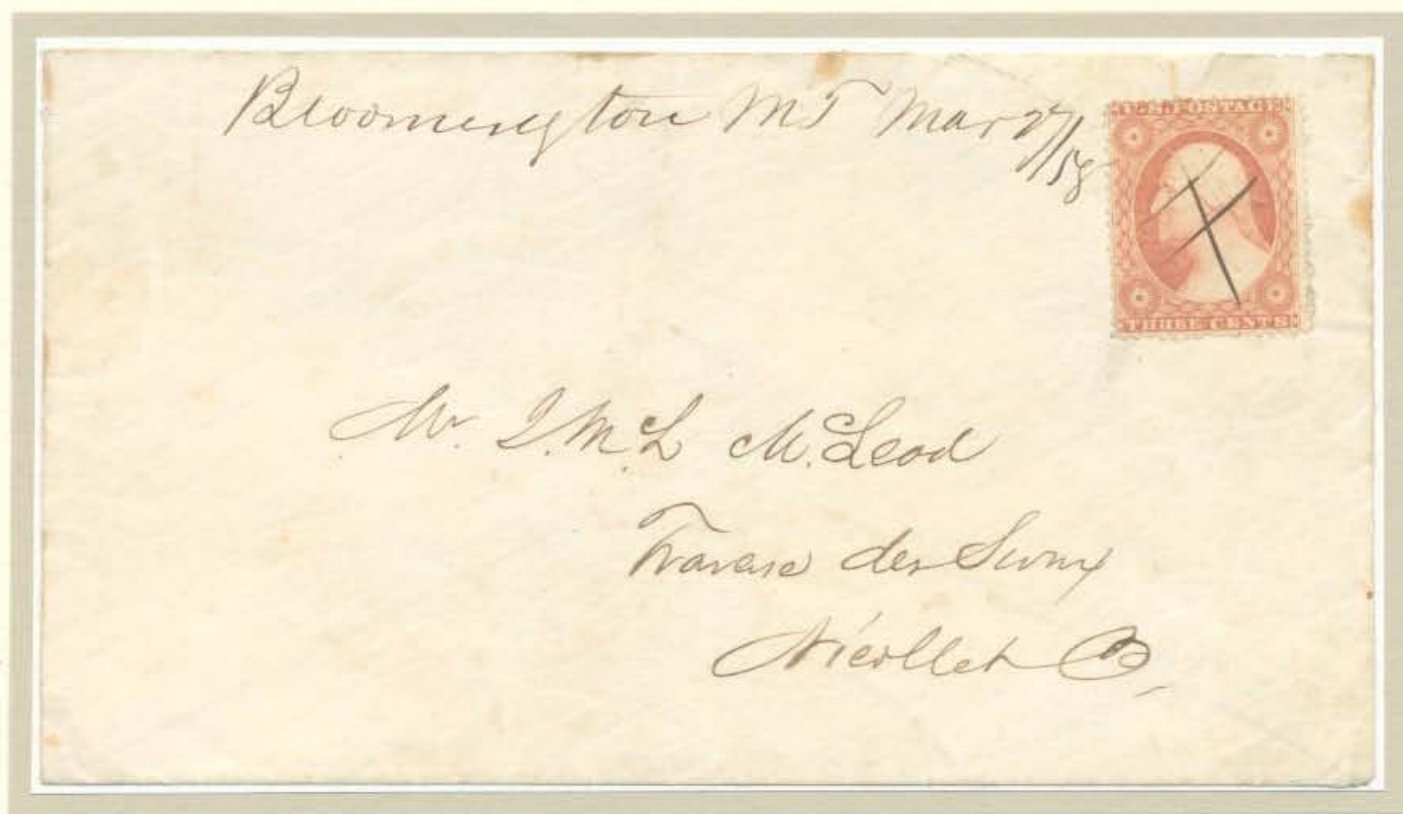 Bloomington MT Mar 27/58
U.S. POSTAGE
THREE CENTS
Mr. J. M. L McLeod
Travese des Sioux
Nicollet Co,